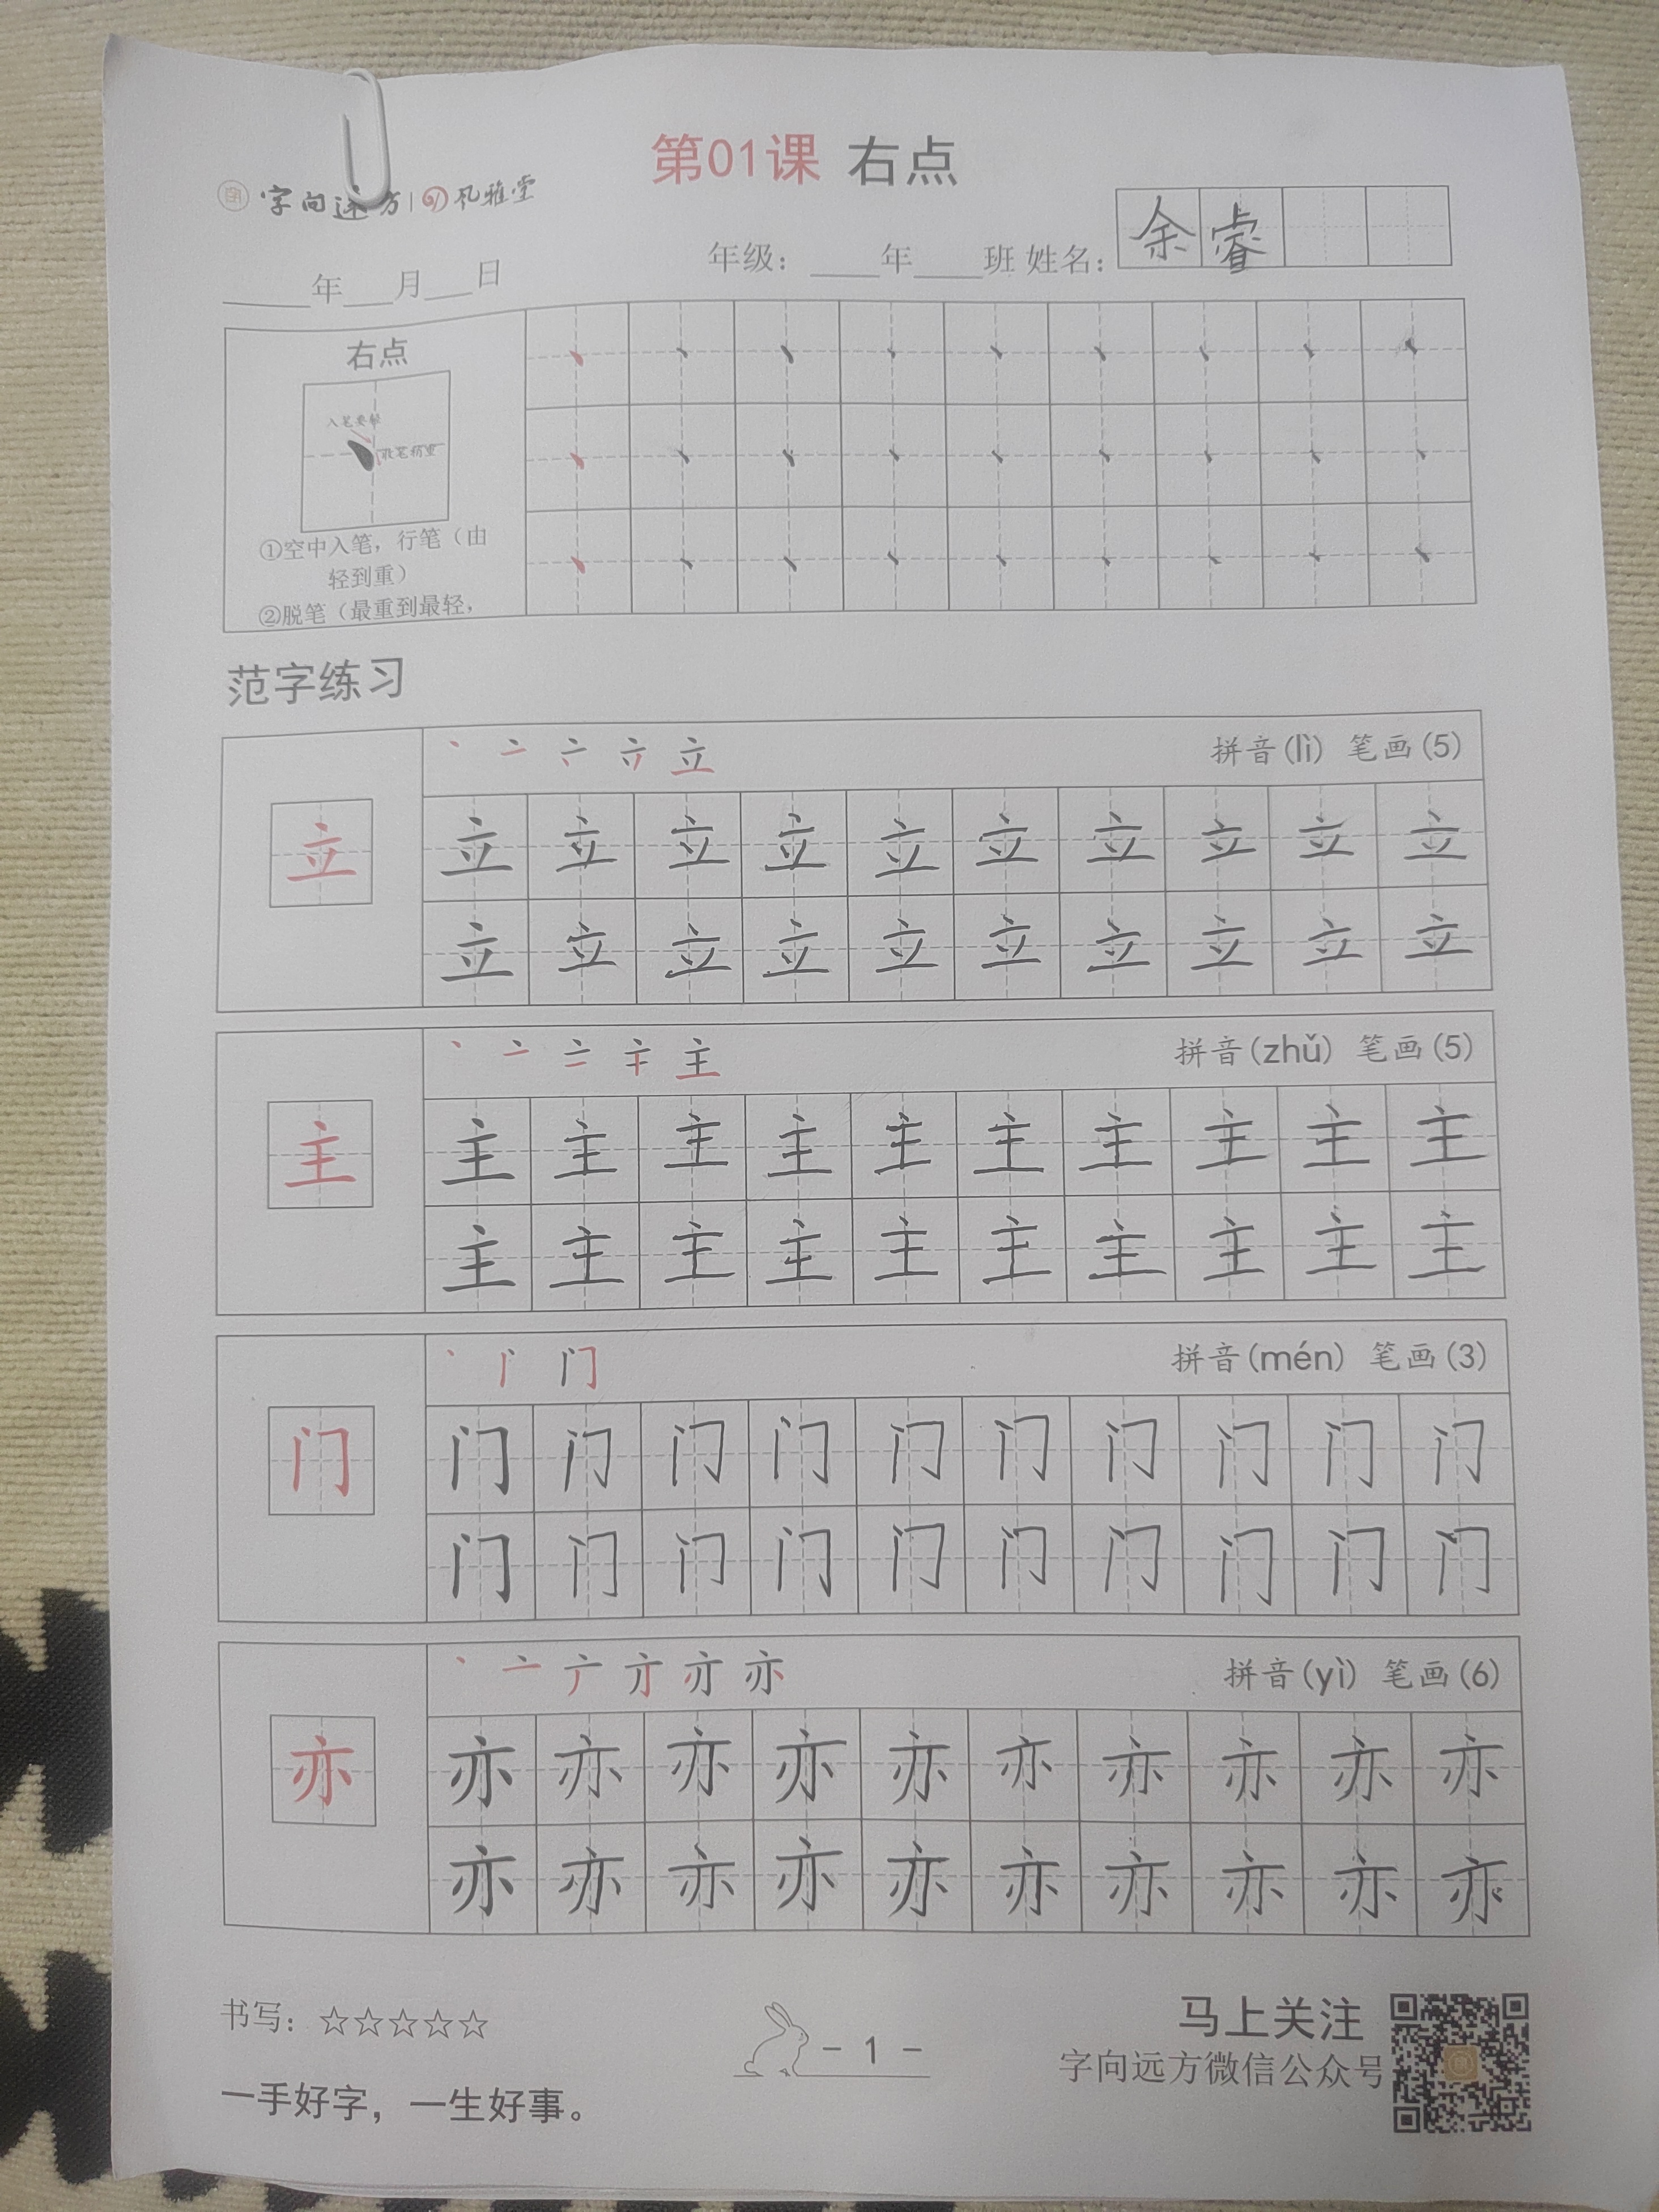 第01课 右点
字向远方 风雅堂
年级：____年____班 姓名：余睿
_____年___月___日
右点
入笔要轻
收笔稍重
①空中入笔，行笔（由
轻到重）
②脱笔（最重到最轻，
范字练习
立 拼音(lì) 笔画(5)
立 立 立 立 立 立 立 立 立 立 立
立 立 立 立 立 立 立 立 立 立
主 拼音(zhǔ) 笔画(5)
主 主 主 主 主 主 主 主 主 主 主
主 主 主 主 主 主 主 主 主 主
门 拼音(mén) 笔画(3)
门 门 门 门 门 门 门 门 门 门 门
门 门 门 门 门 门 门 门 门 门
亦 拼音(yì) 笔画(6)
亦 亦 亦 亦 亦 亦 亦 亦 亦 亦 亦
亦 亦 亦 亦 亦 亦 亦 亦 亦 亦
书写：☆☆☆☆☆
- 1 -
马上关注
字向远方微信公众号
一手好字，一生好事。